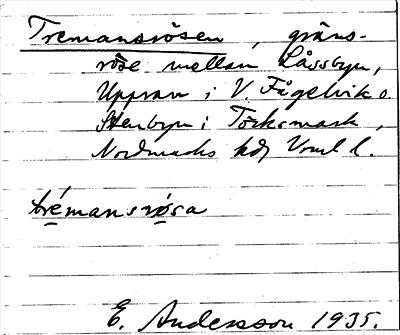 Tremansrösen, gräns-
röse mellan Låssbyn,
Uppsan i V. Fågelvik o.
Stenbyn i Töcksmark,
Nordmarks hd, Vrml l.
trémansrøsa
E. Andersson 1935.